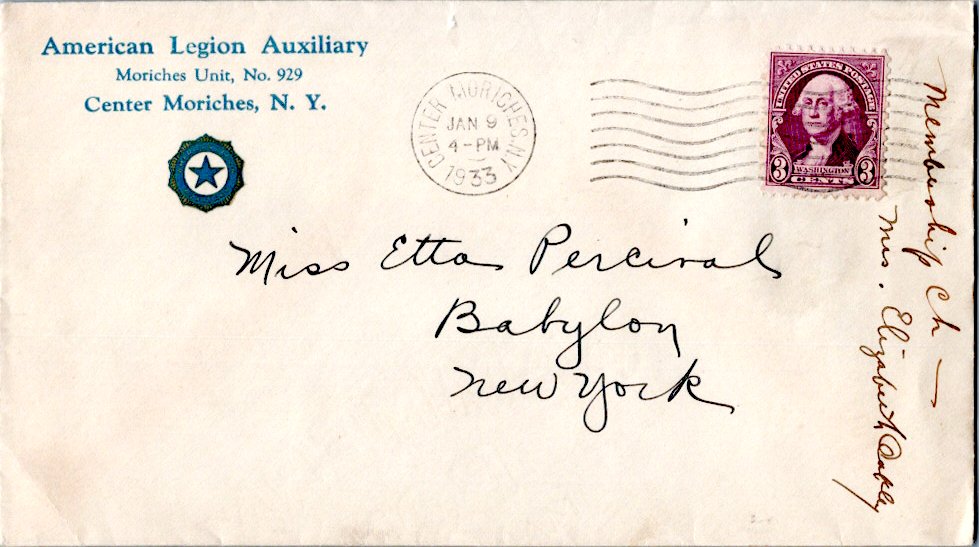 American Legion Auxiliary
Moriches Unit, No. 929
Center Moriches, N. Y.
CENTER MORICHES, N.Y.
JAN 9
4-PM
1933
UNITED STATES POSTAGE
WASHINGTON
3 CENTS 3
Miss Etta Percival
Babylon
New York
Membership Ch —
Mrs. Elizabeth Oakley